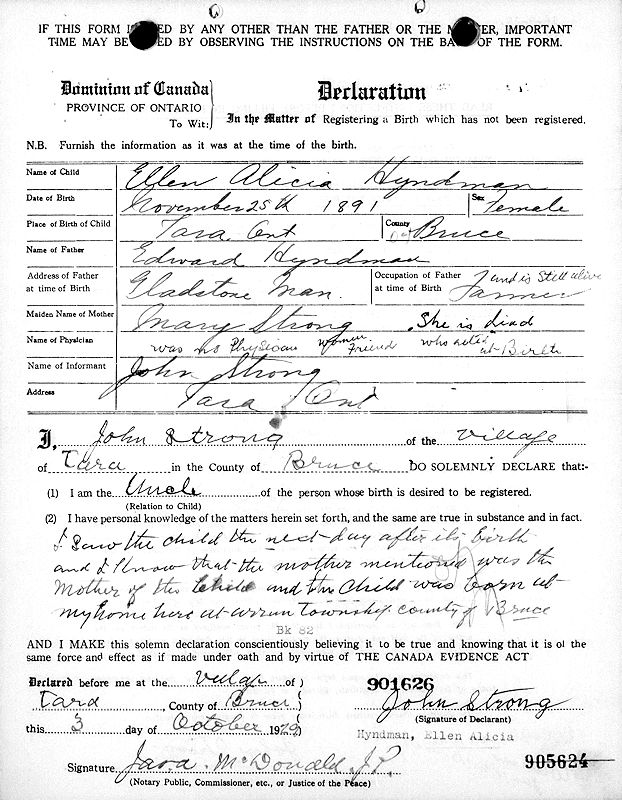 IF THIS FORM IS BY ANY OTHER THAN THE FATHER OR THE MOTHER, IMPORTANT
TIME MAY BE BY OBSERVING THE INSTRUCTIONS ON THE BACK OF THE FORM.
Dominion of Canada
PROVINCE OF ONTARIO
To Wit:
Declaration
In the Matter of Registering a Birth which has not been registered.
N.B. Furnish the information as it was at the time of the birth.
Name of Child Ellen Alicia Hyndman
Date of Birth November 25th 1891 Sex Female
Place of Birth of Child Tara Ont County Bruce
Name of Father Edward Hyndman
Address of Father at time of Birth Gladstone Man. Occupation of Father at time of Birth Farmer and is still alive
Maiden Name of Mother Mary Strong She is dead
Name of Physician was no Physician woman Friend who acted at Birth
Name of Informant John Strong
Address Tara Ont
I, John Strong of the Village
of Tara in the County of Bruce DO SOLEMNLY DECLARE that:-
(1) I am the Uncle of the person whose birth is desired to be registered.
(Relation to Child)
(2) I have personal knowledge of the matters herein set forth, and the same are true in substance and in fact.
I Saw the child the next day after its birth
and I Know that the mother mentioned was the
Mother of this Child and the Child was born at
my home here at arran township county of Bruce
Bk 82
AND I MAKE this solemn declaration conscientiously believing it to be true and knowing that it is of the
same force and effect as if made under oath and by virtue of THE CANADA EVIDENCE ACT
Declared before me at the of
Tara, County of Bruce
this 3 day of October 19
901626
John Strong
(Signature of Declarant)
Hyndman, Ellen Alicia
Signature McDonald J.P.
(Notary Public, Commissioner, etc., or Justice of the Peace)
905624